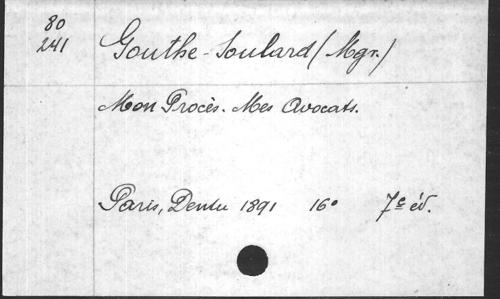 80
241
Gouthe-Soulard (Mgr.)
Mon Procès. Mes Avocats.
Paris, Dentu 1891 16° 7e éd.